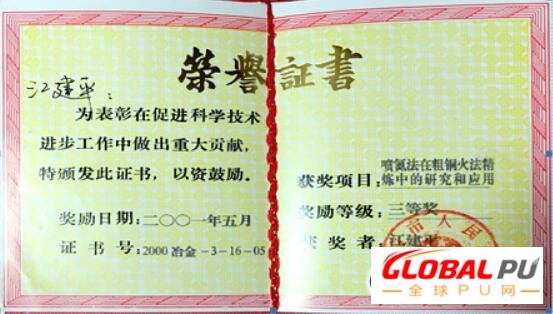 荣誉证书
江建平：
为表彰在促进科学技术
进步工作中做出重大贡献，
特颁发此证书，以资鼓励。
奖励日期：二〇〇一年五月
证书号：2000冶金-3-16-05
获奖项目：喷氮法在粗铜火法精
炼中的研究和应用
奖励等级：三等奖
获奖者：江建平
市人民
GLOBAL PU
全球PU网